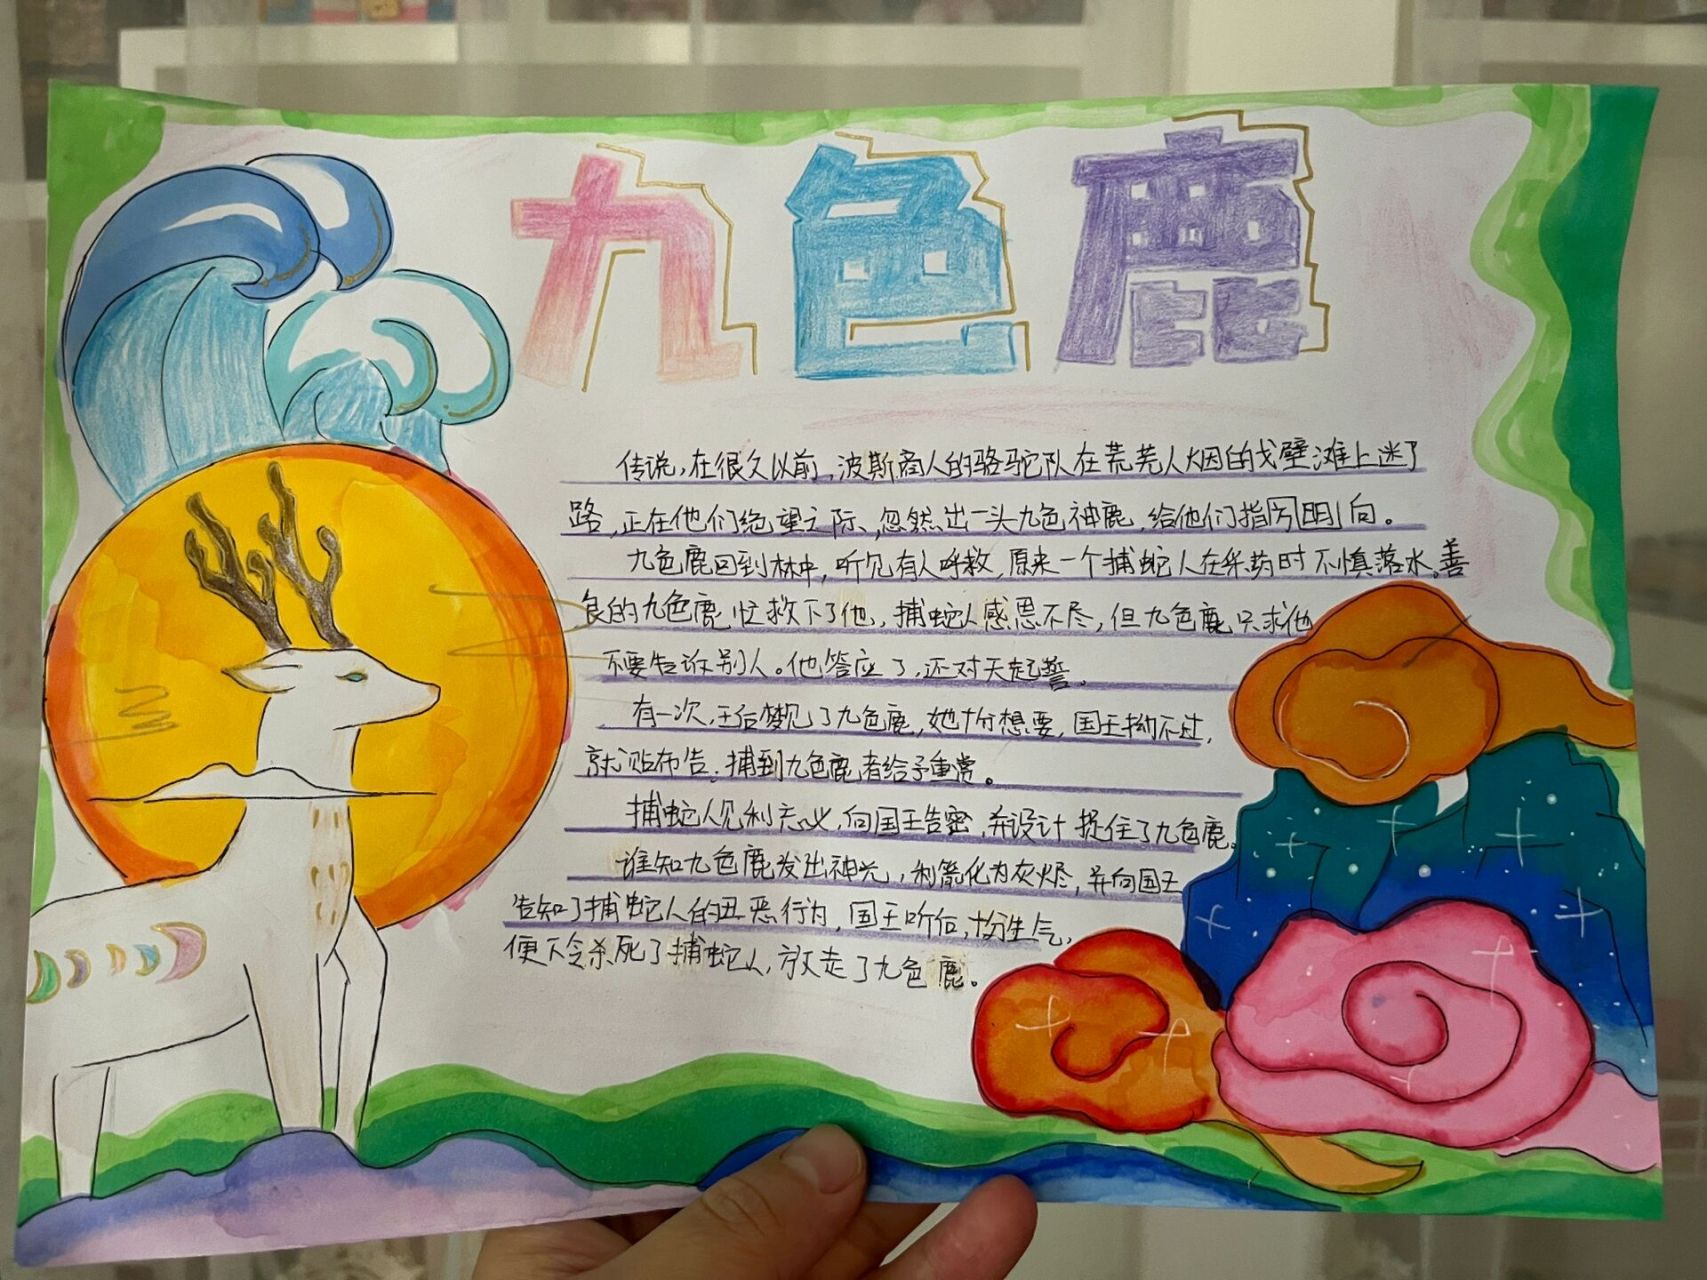 九色鹿
传说,在很久以前,波斯商人的骆驼队在荒芜人烟的戈壁滩上迷了
路,正在他们绝望之际、忽然出一头九色神鹿,给他们指向。
九色鹿回到林中,听见有人呼救,原来一个捕蛇人在采药时不慎落水。善
良的九色鹿忙救下了他,捕蛇人感恩不尽,但九色鹿只求他
不要告诉别人。他答应了,还对天起誓。
有一次,王后梦见了九色鹿,她十分想要,国王拗不过,
就贴布告。捕到九色鹿者给予重赏。
捕蛇人见利忘义,向国王告密,并设计捉住了九色鹿。
谁知九色鹿发出神光,利箭化为灰烬,并向国王
告知了捕蛇人的丑恶行为,国王听后,十分生气,
便下令杀死了捕蛇人,放走了九色鹿。